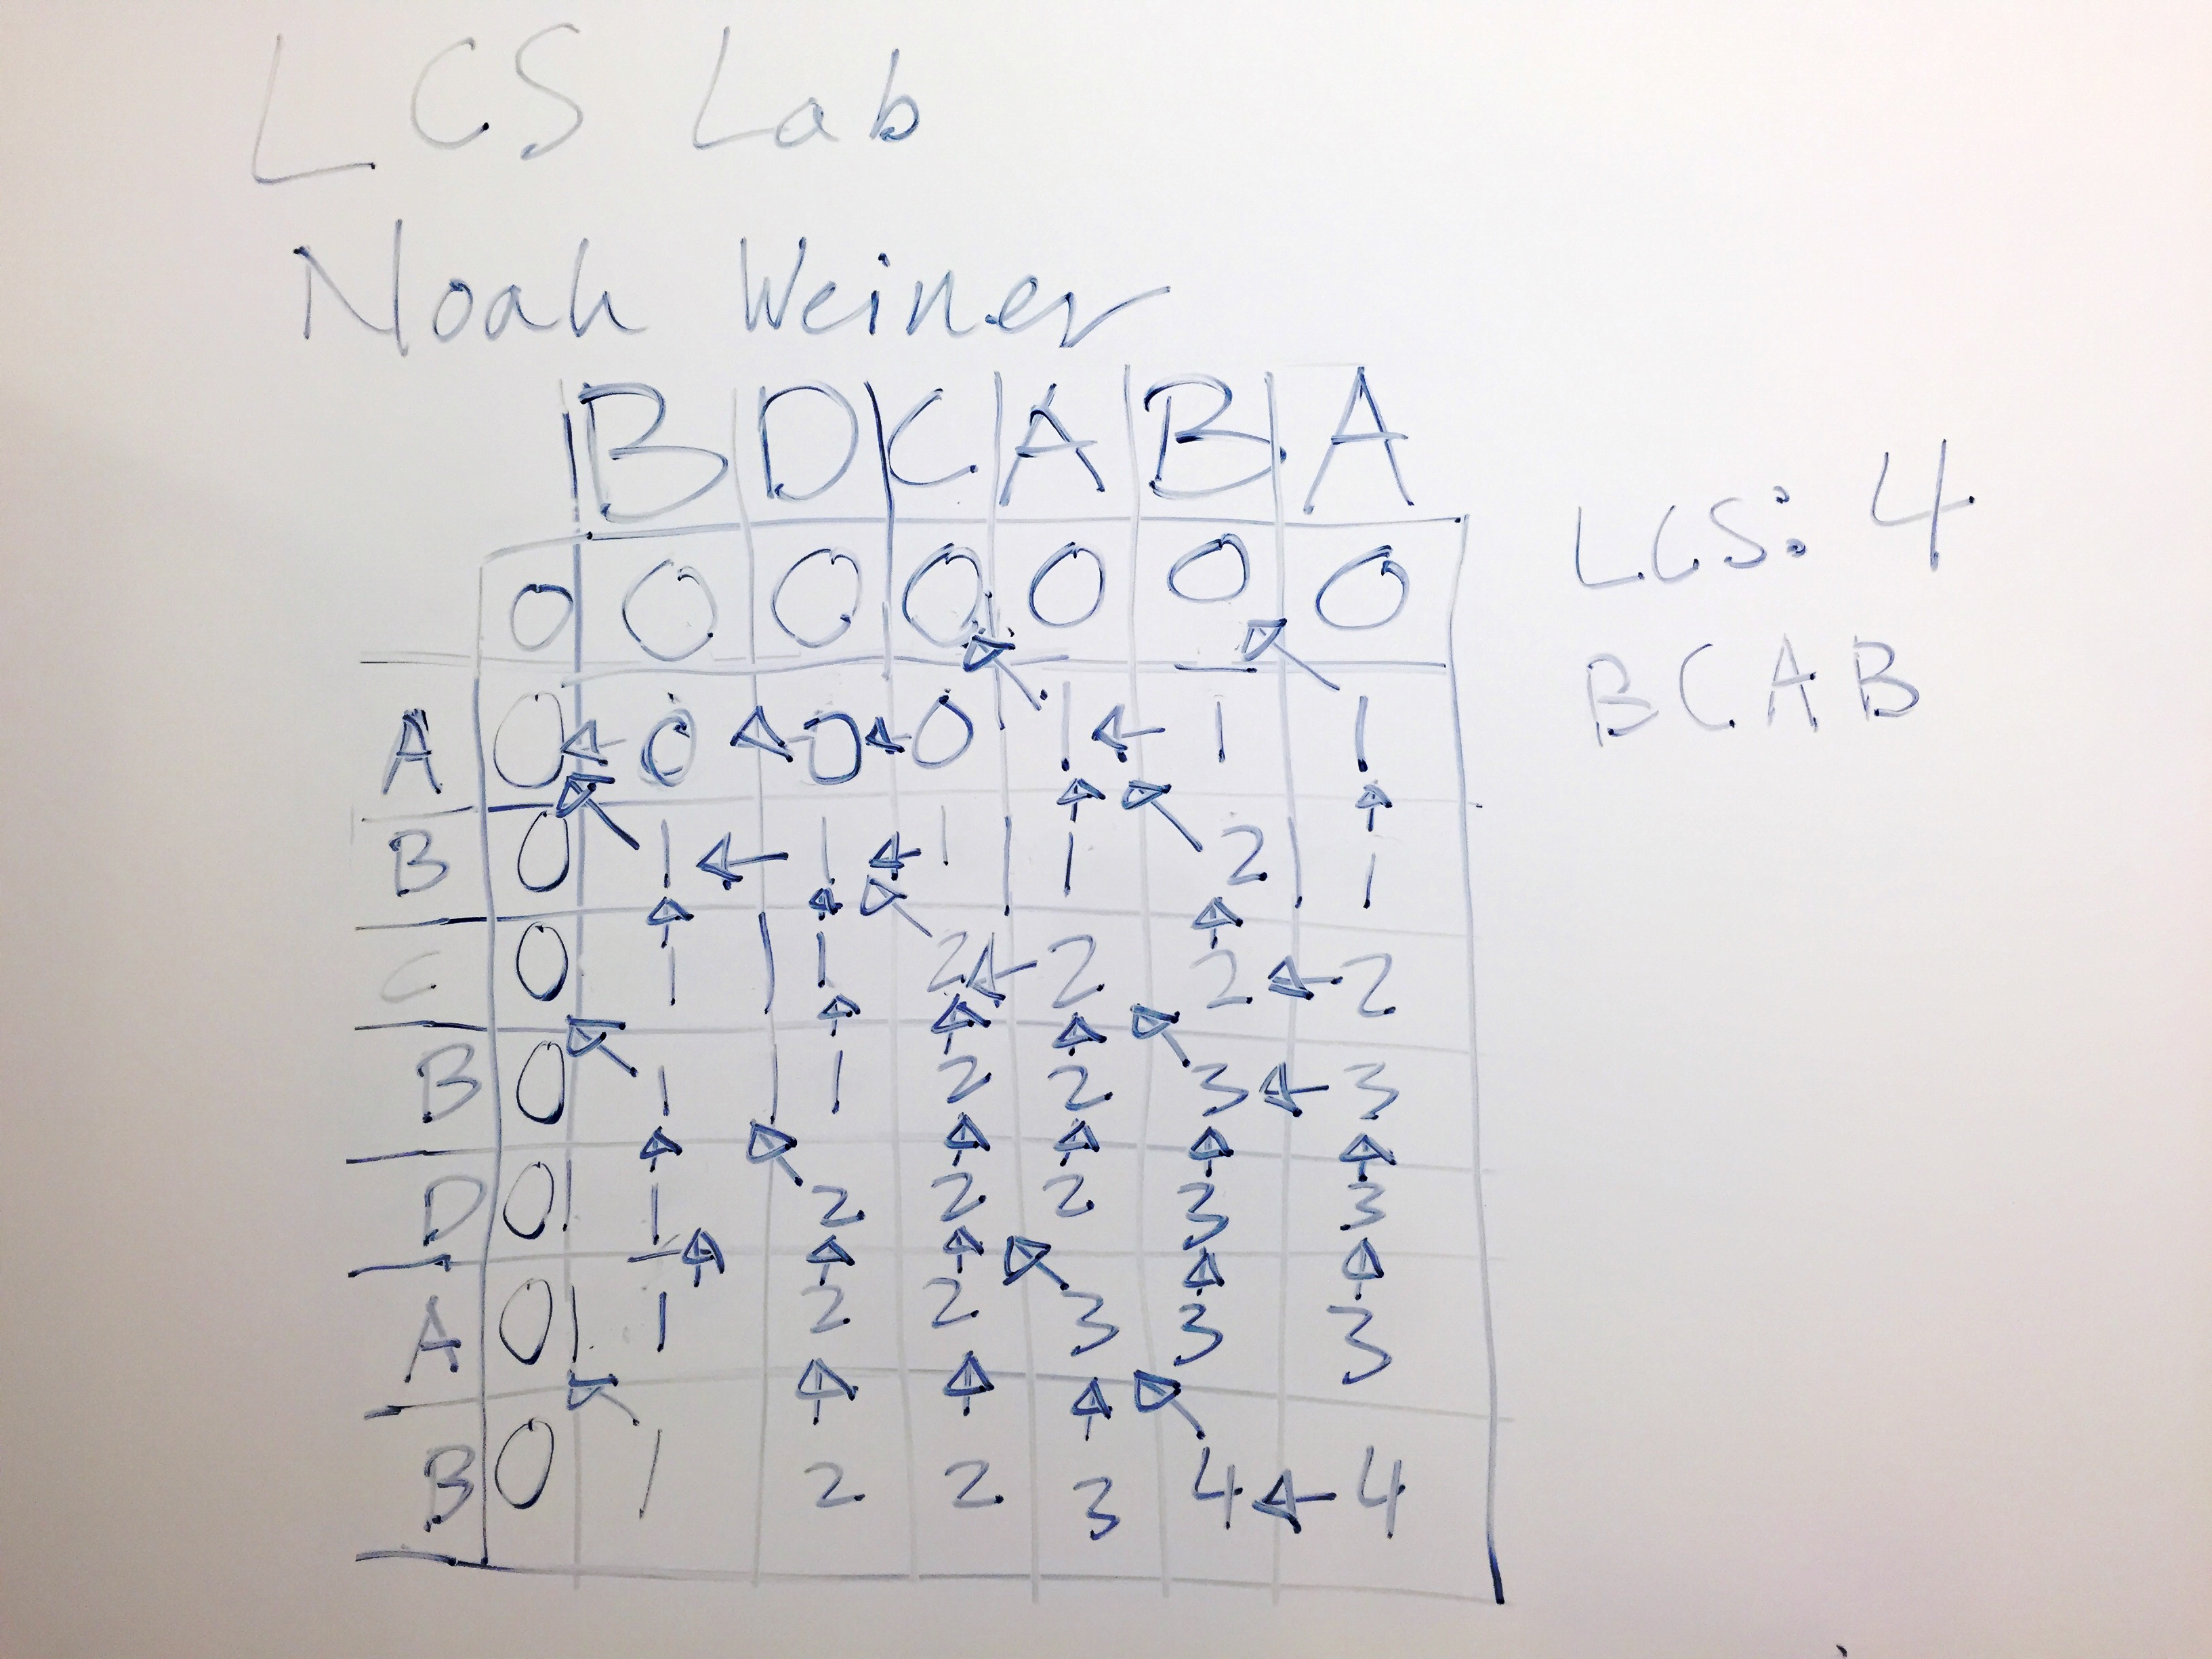 LCS Lab
Noah Weiner
B D C A B A
0 0 0 0 0 0 0
A 0 0 0 0 1 1 1
B 0 1 1 1 1 2 1
C 0 1 1 2 2 2 2
B 0 1 1 2 2 3 3
D 0 1 2 2 2 3 3
A 0 1 2 2 3 3 3
B 0 1 2 2 3 4 4
LCS: 4
BCAB